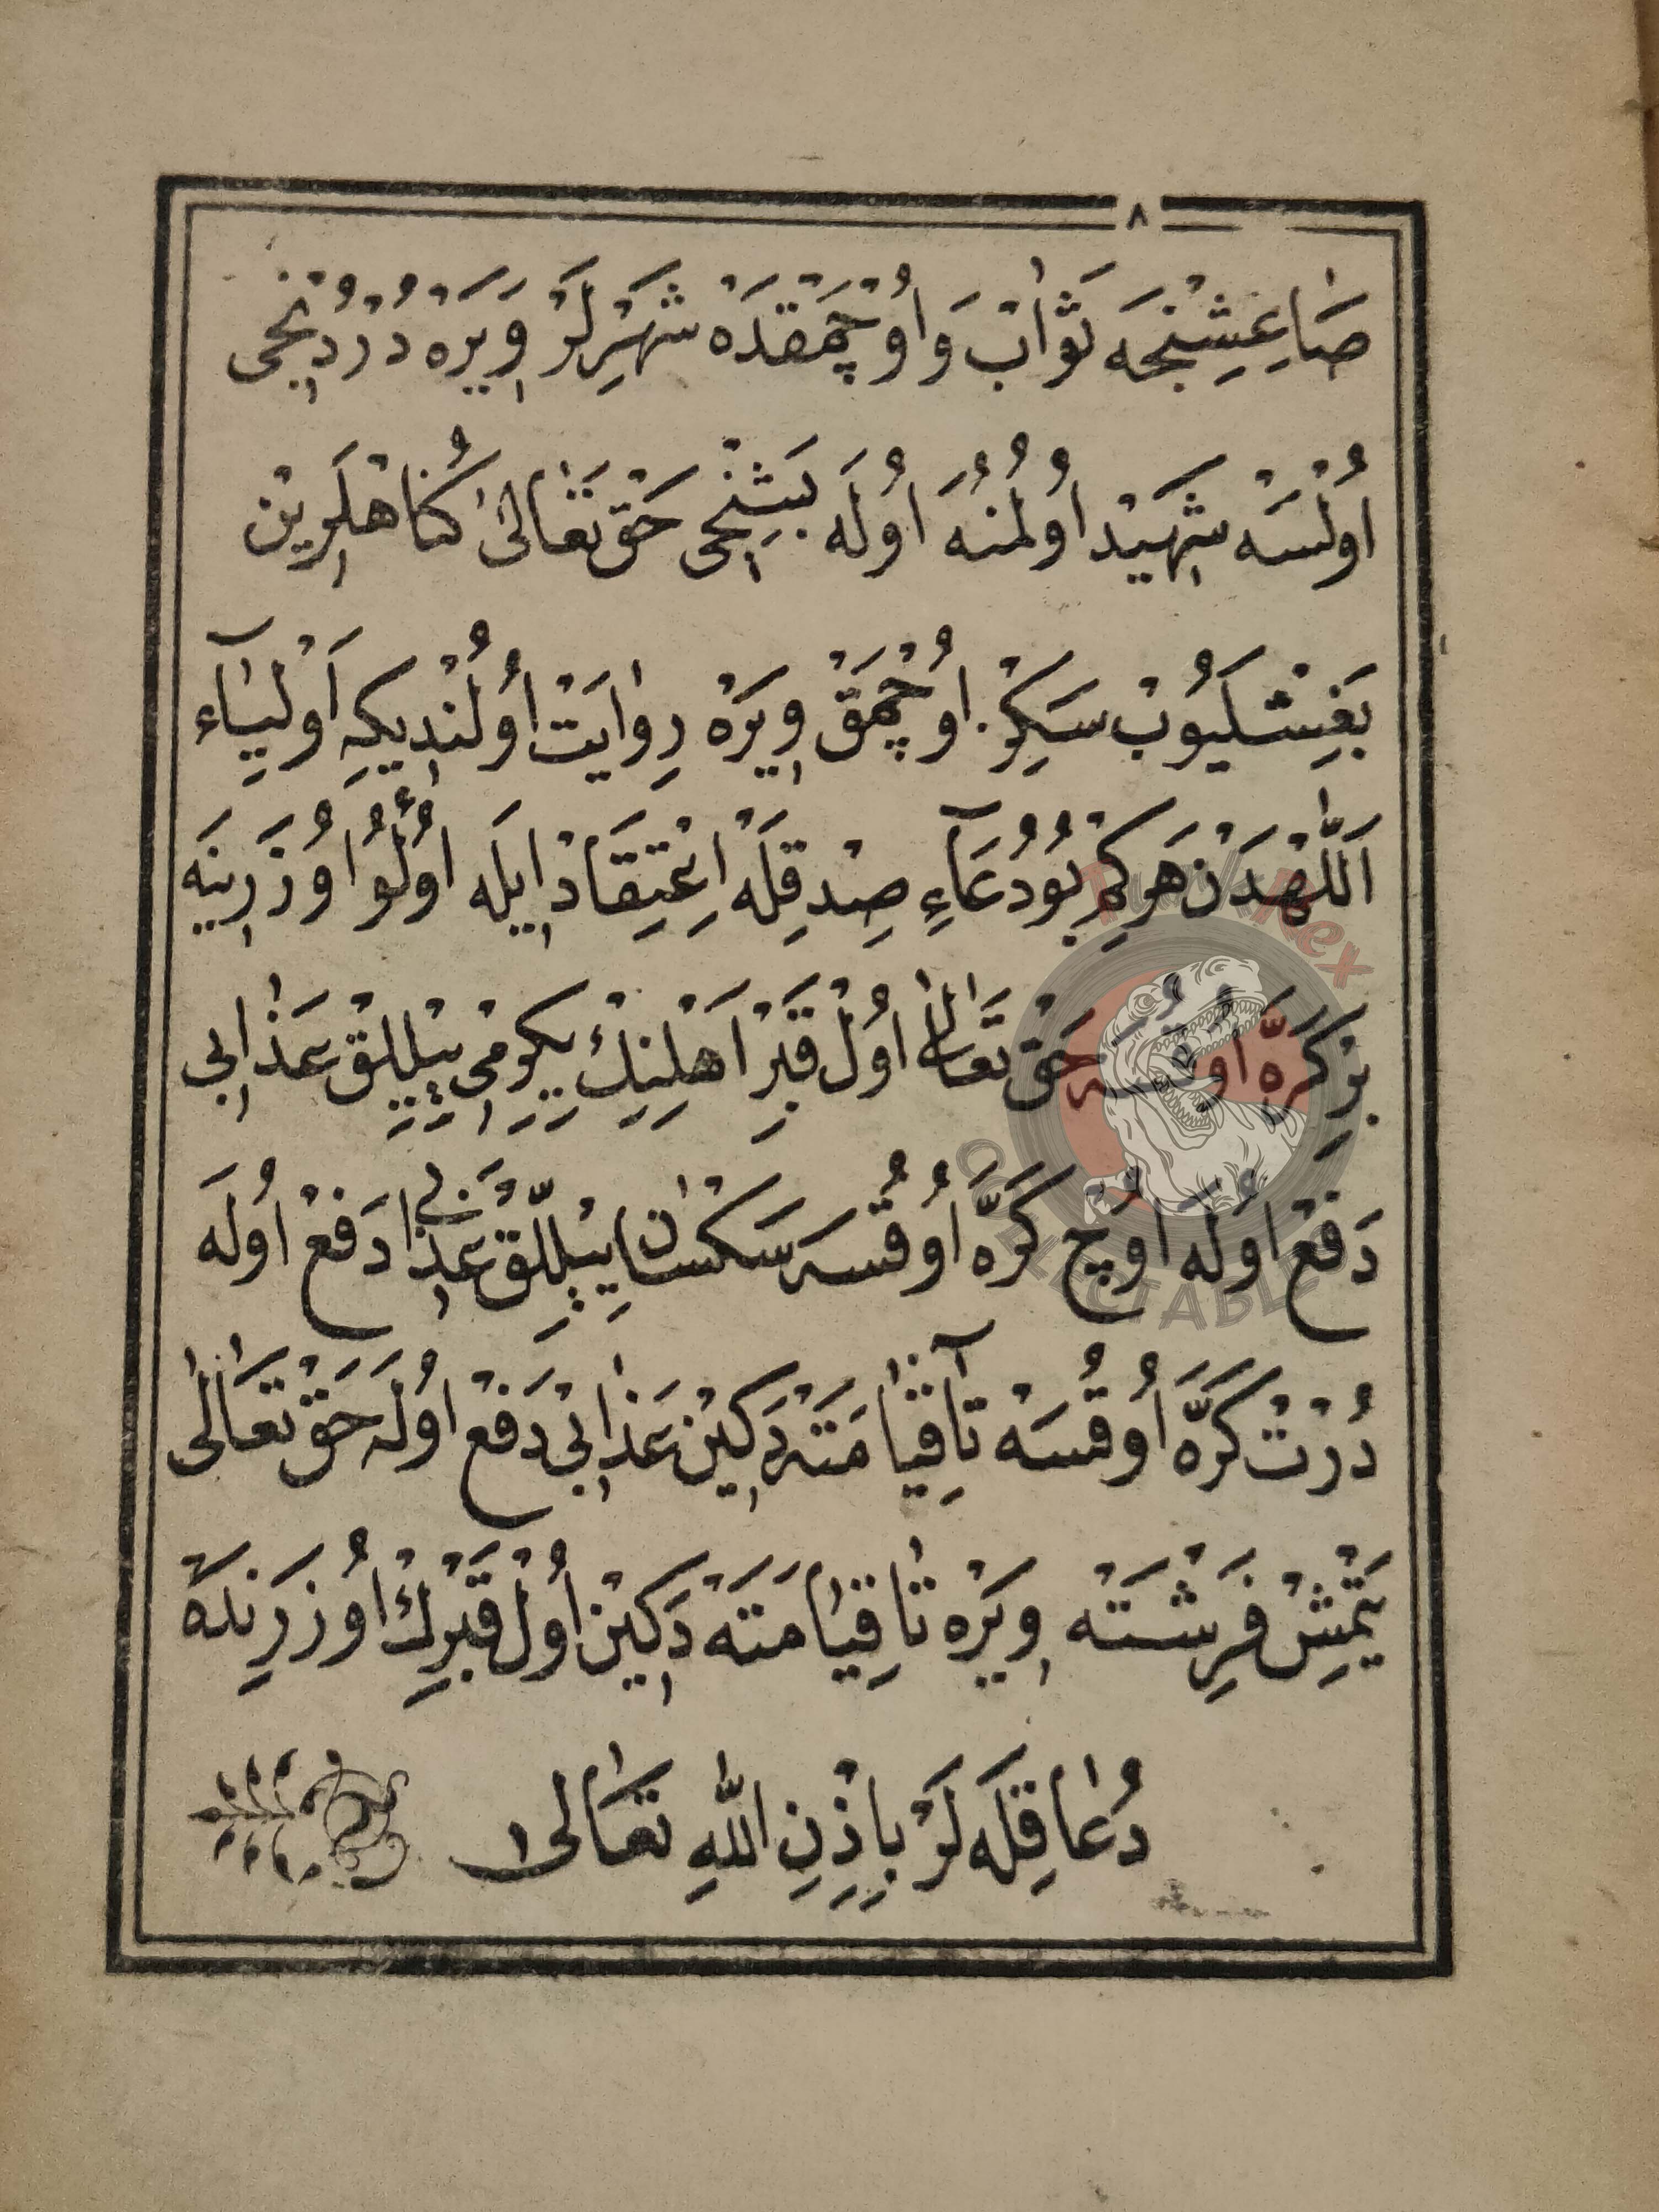 ٨
صَاغِشِنْجَه ثَوَابْ وَاُوچْمَقْدَه شَهِرْلَرْ وِيرَه دُرْدِنْجِى
اُولْسَه شَهِيدْ اُولْمُنُه اُولَه بَشِنْجِى حَقْ تَعَالٰى كُنَاهْلَرِينْ
بَغِشْلَيُوبْ سَكِزْ اُوچْمَقْ وِيرَه رِوَايَتْ اُولُنْدِيكِه اَوْلِيَآءِ
اَللّٰهْدَنْ هَرْكِمْ بُو دُعَآءِ صِدْقِلَه اِعْتِقَادْ اِيلَه اُولُو اُوزَرِينَه
بِرْ كَرَّه اُوقُسَه حَقْ تَعَالٰى اُولْ قَبِرْ اَهْلِنِكْ يِكِرْمِى بِيْلِلِقْ عَذَابِى
دَفِعْ اُولَه اُوچْ كَرَّه اُوقُسَه سَكْسَانْ يِيْلِلِّقْ عَذَابِى دَفِعْ اُولَه
دُرْتْ كَرَّه اُوقُسَه تَا قِيَامَتَه دَكِينْ عَذَابِى دَفِعْ اُولَه حَقْ تَعَالٰى
يَتْمِشْ فِرِشْتَه وِيرَه تَا قِيَامَتَه دَكِينْ اُولْ قَبْرِكْ اُوزَرِنْدَه
دُعَا قِلَه لَرْ بِاِذْنِ اللّٰهِ تَعَالٰى
Turk Rex
COLLECTABLE